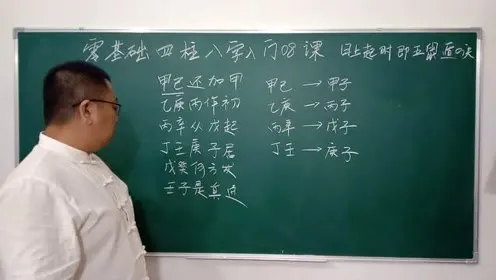 零基础四柱八字入门08课 日上起时即五鼠遁口诀
甲己还加甲
乙庚丙作初
丙辛从戊起
丁壬庚子居
戊癸何方发
壬子是真途
甲己→甲子
乙庚→丙子
丙辛→戊子
丁壬→庚子